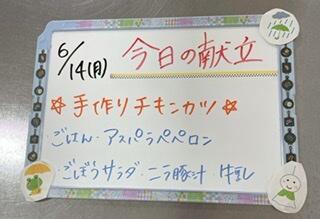 6/14(月) 今日の献立
☆手作りチキンカツ☆
・ごはん・アスパラペペロン
・ごぼうサラダ・ニラ豚汁・牛乳